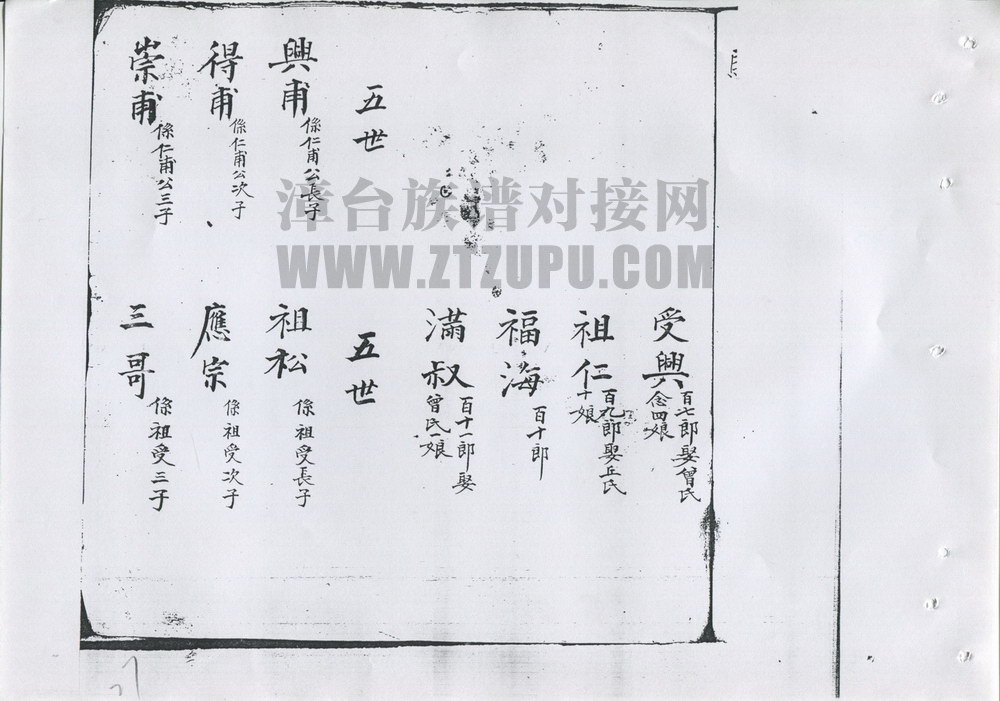 五世
興甫 係仁甫公長子
得甫 係仁甫公次子
崇甫 係仁甫公三子
受興 百七郎娶曾氏
念四娘
祖仁 百九郎娶丘氏
十娘
福海 百十郎
滿叔 百十一郎娶
曾氏一娘
五世
祖松 係祖受長子
應宗 係祖受次子
三哥 係祖受三子
漳台族谱对接网
WWW.ZTZUPU.COM